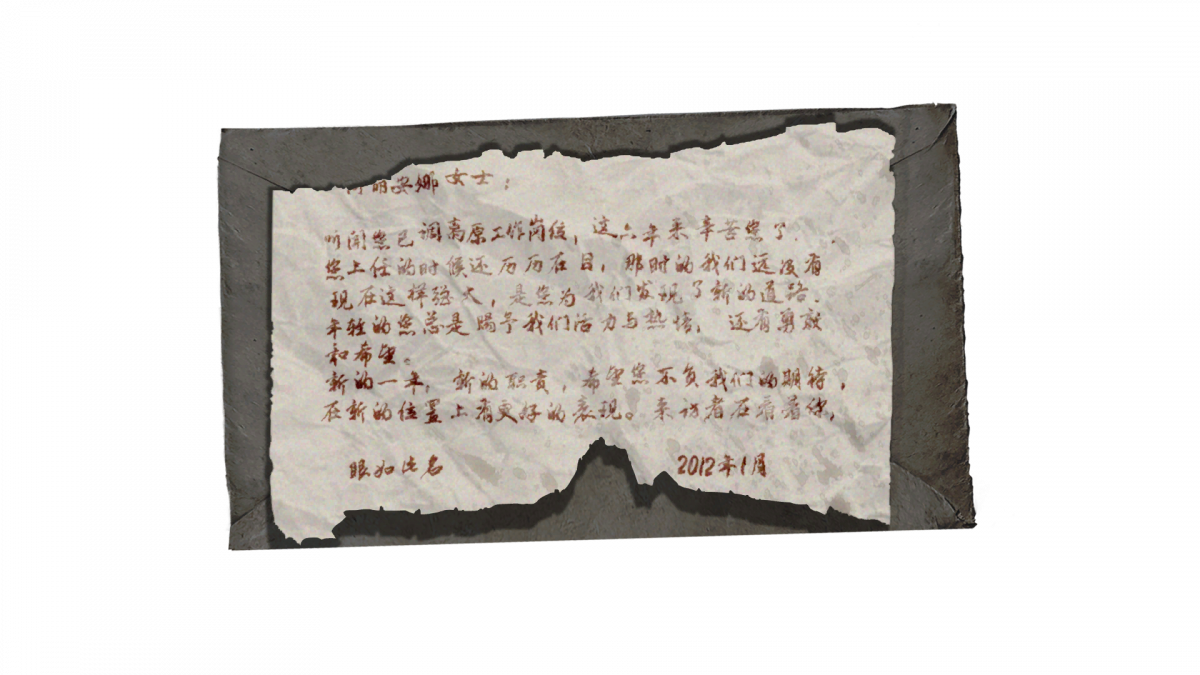 丽安娜女士：
听闻您已调离原工作岗位，这六年来辛苦您了.
您上任的时候还历历在目，那时的我们远没有
现在这样强大，是您为我们发现了新的道路.
年轻的您总是赐予我们活力与热情，还有勇敢
和希望。
新的一年，新的职责，希望您不负我们的期待，
在新的位置上有更好的表现。来访者在看着你，
眼如其名
2012年1月